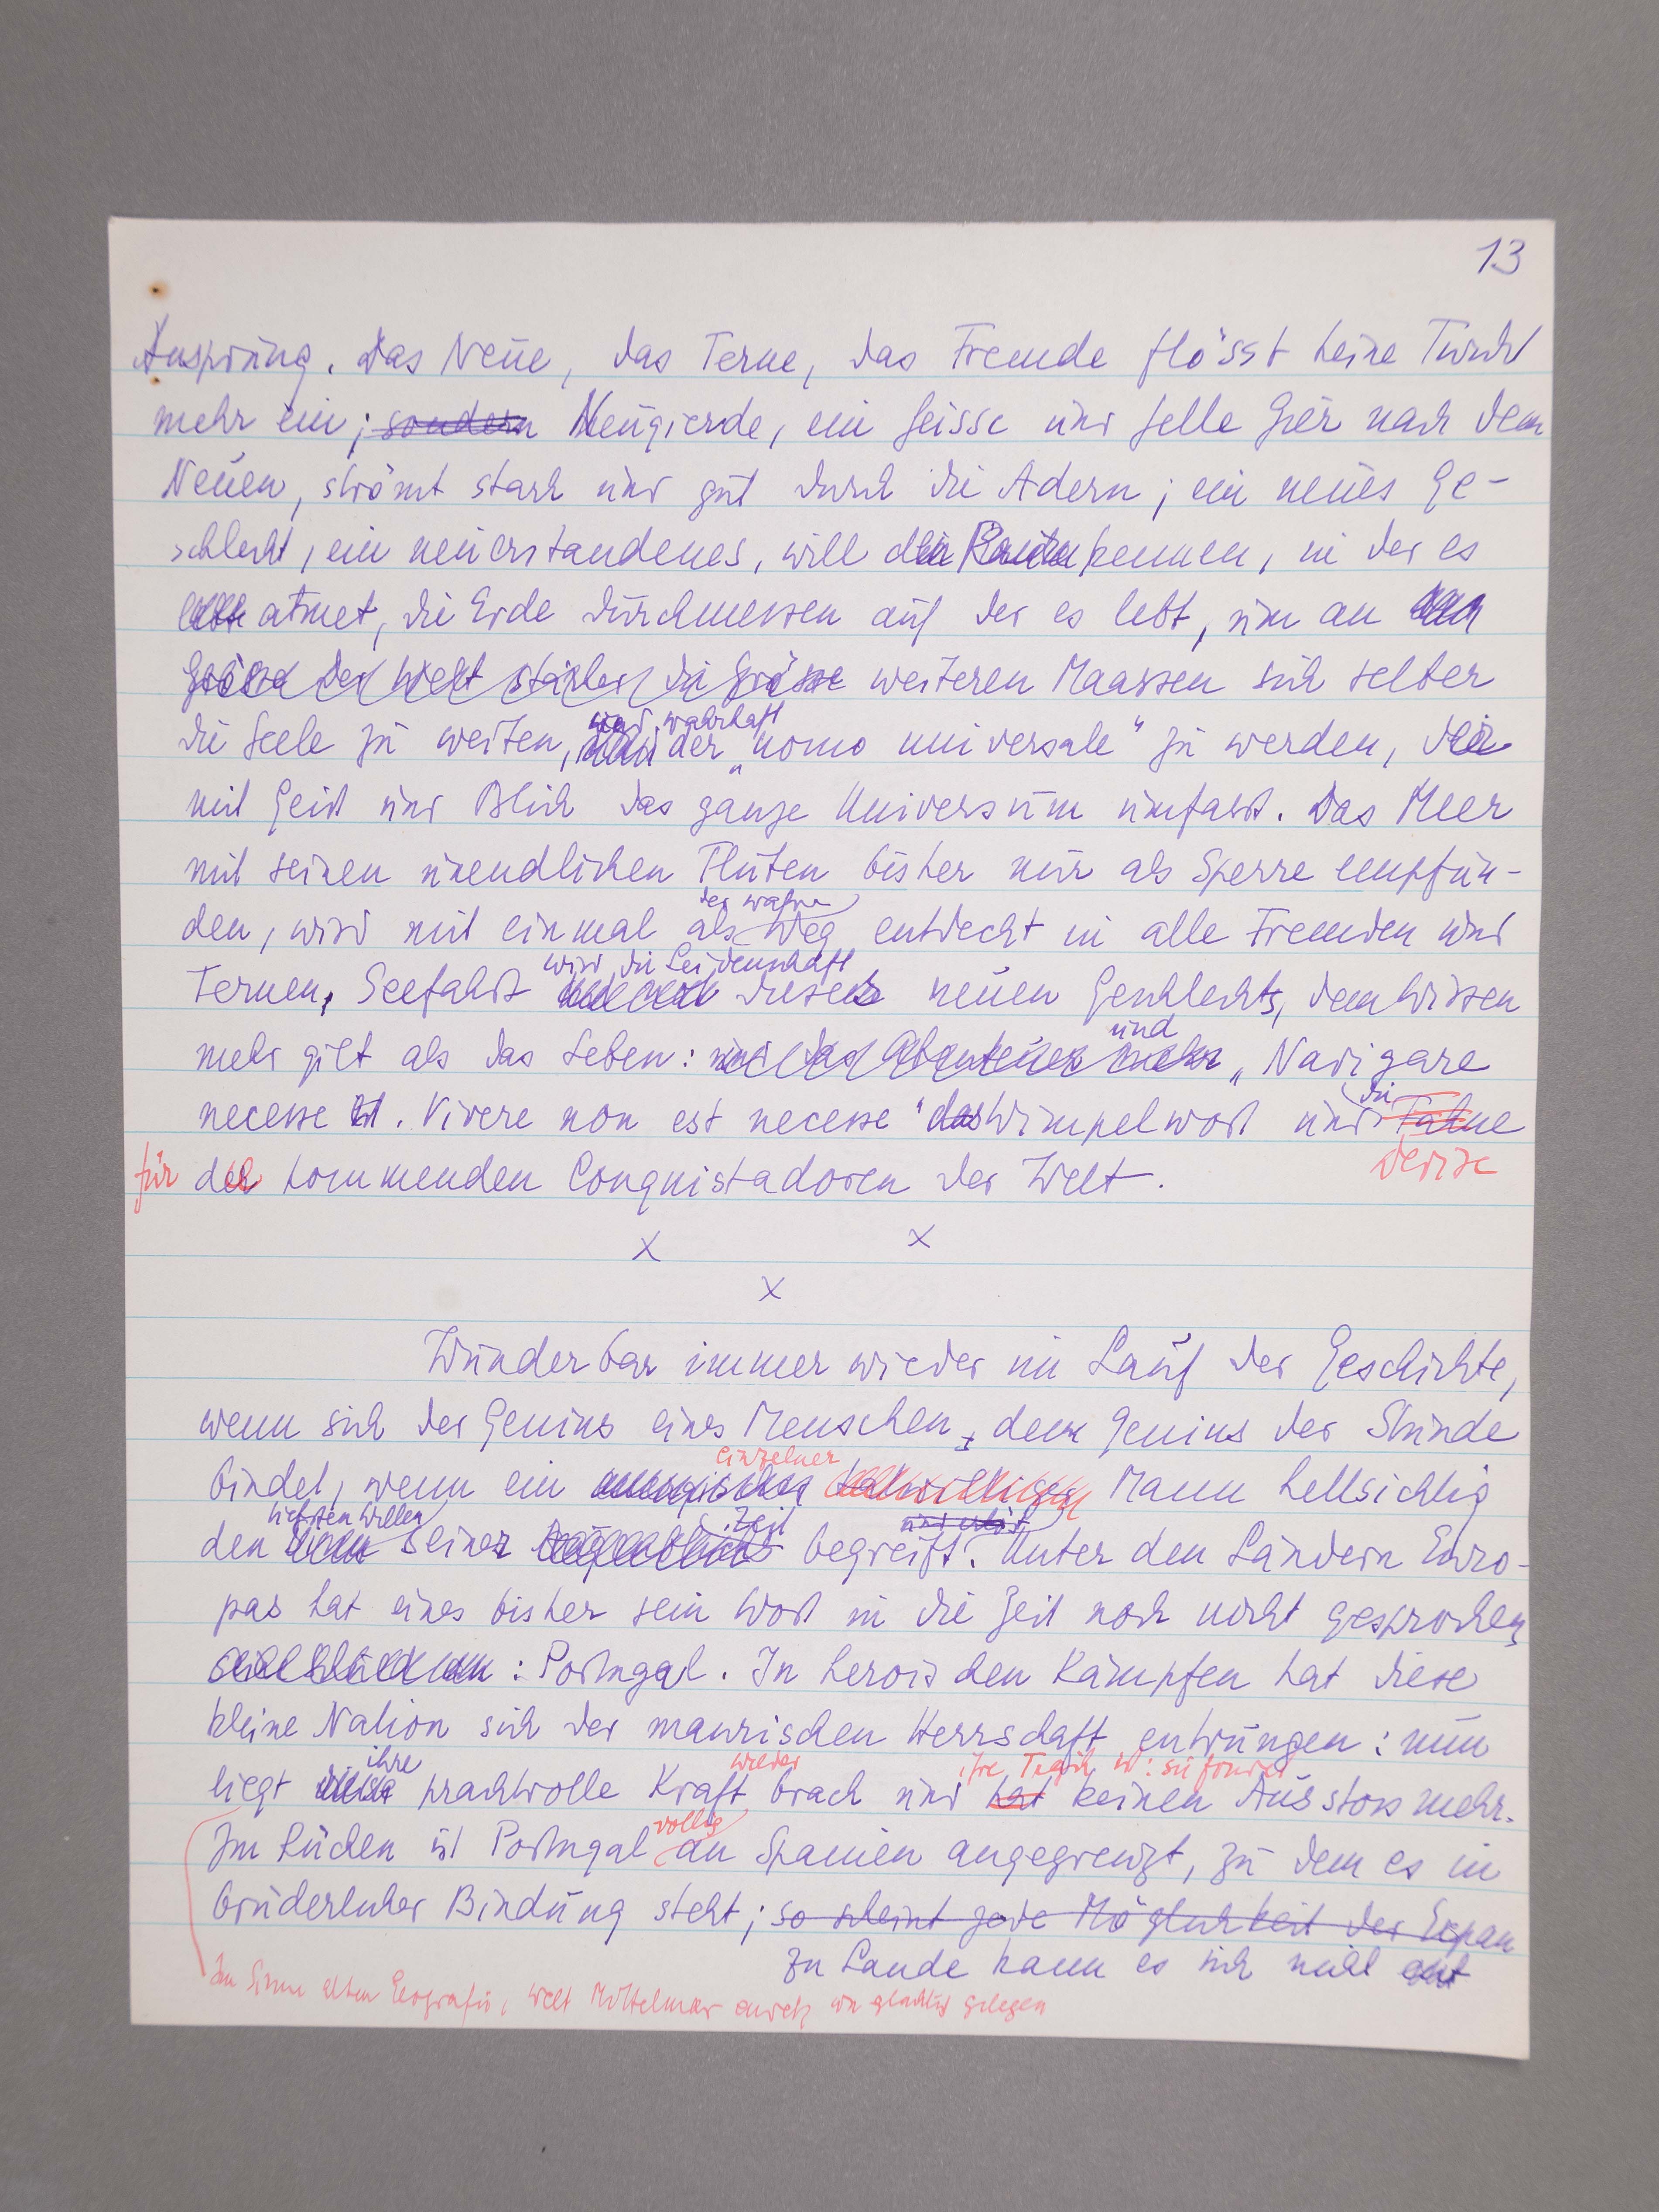 13
Ansprung. Das Neue, das Ferne, das Fremde flösst keine Furcht
mehr ein; sondern Neugierde, ein heisse und helle Gier nach dem
Neuen, strömt stark und gut durch die Adern; ein neues Ge-
schlecht, ein neuerstandenes, will kennen, in der es
atmet, die Erde durchmessen auf der es lebt, um an
Grösse der Welt stärker die Grösse weiteren Maassen sich selber
und wahrhaft
die Seele zu weiten, der „uomo universale" zu werden, der
mit Geist und Blick das ganze Universum umfasst. Das Meer
mit seinen unendlichen Fluten bisher nur als Sperre empfun-
der wahre
den, wird mit einmal als Weg entdeckt in alle Fremden und
wird die Leidenschaft
Fernen, Seefahrt dieses neuen Geschlechts, dem Wissen
und
mehr gilt als das Leben: und das Abenteuer mehr „Navigare
die
necesse est. Vivere non est necesse" das Wimpelwort und Fahne
Devise
für der kommenden Conquistadoren der Welt.
x x
x
Wunderbar immer wieder im Lauf der Geschichte,
wenn sich der Genius eines Menschen, dem Genius der Stunde
einzelner
bindet, wenn ein Mann hellsichtig
tiefsten Willen Zeit und erlöst
den seiner begreift. Unter den Ländern Euro-
pas hat eines bisher sein Wort in die Zeit noch nicht gesprochen
: Portugal. In heroischen Kämpfen hat diese
kleine Nation sich der maurischen Herrschaft entrungen: nun
ihre wieder ihre
liegt diese prachtvolle Kraft brach und hat keinen Ausstoss mehr.
völlig
Im Süden ist Portugal an Spanien angegrenzt, zu dem es in
brüderlicher Bindung steht; so scheint jede Möglichkeit der Expan
zu Lande kann es sich nicht
Im Sinne alten Geografie, weit Mittelmeer gelegen